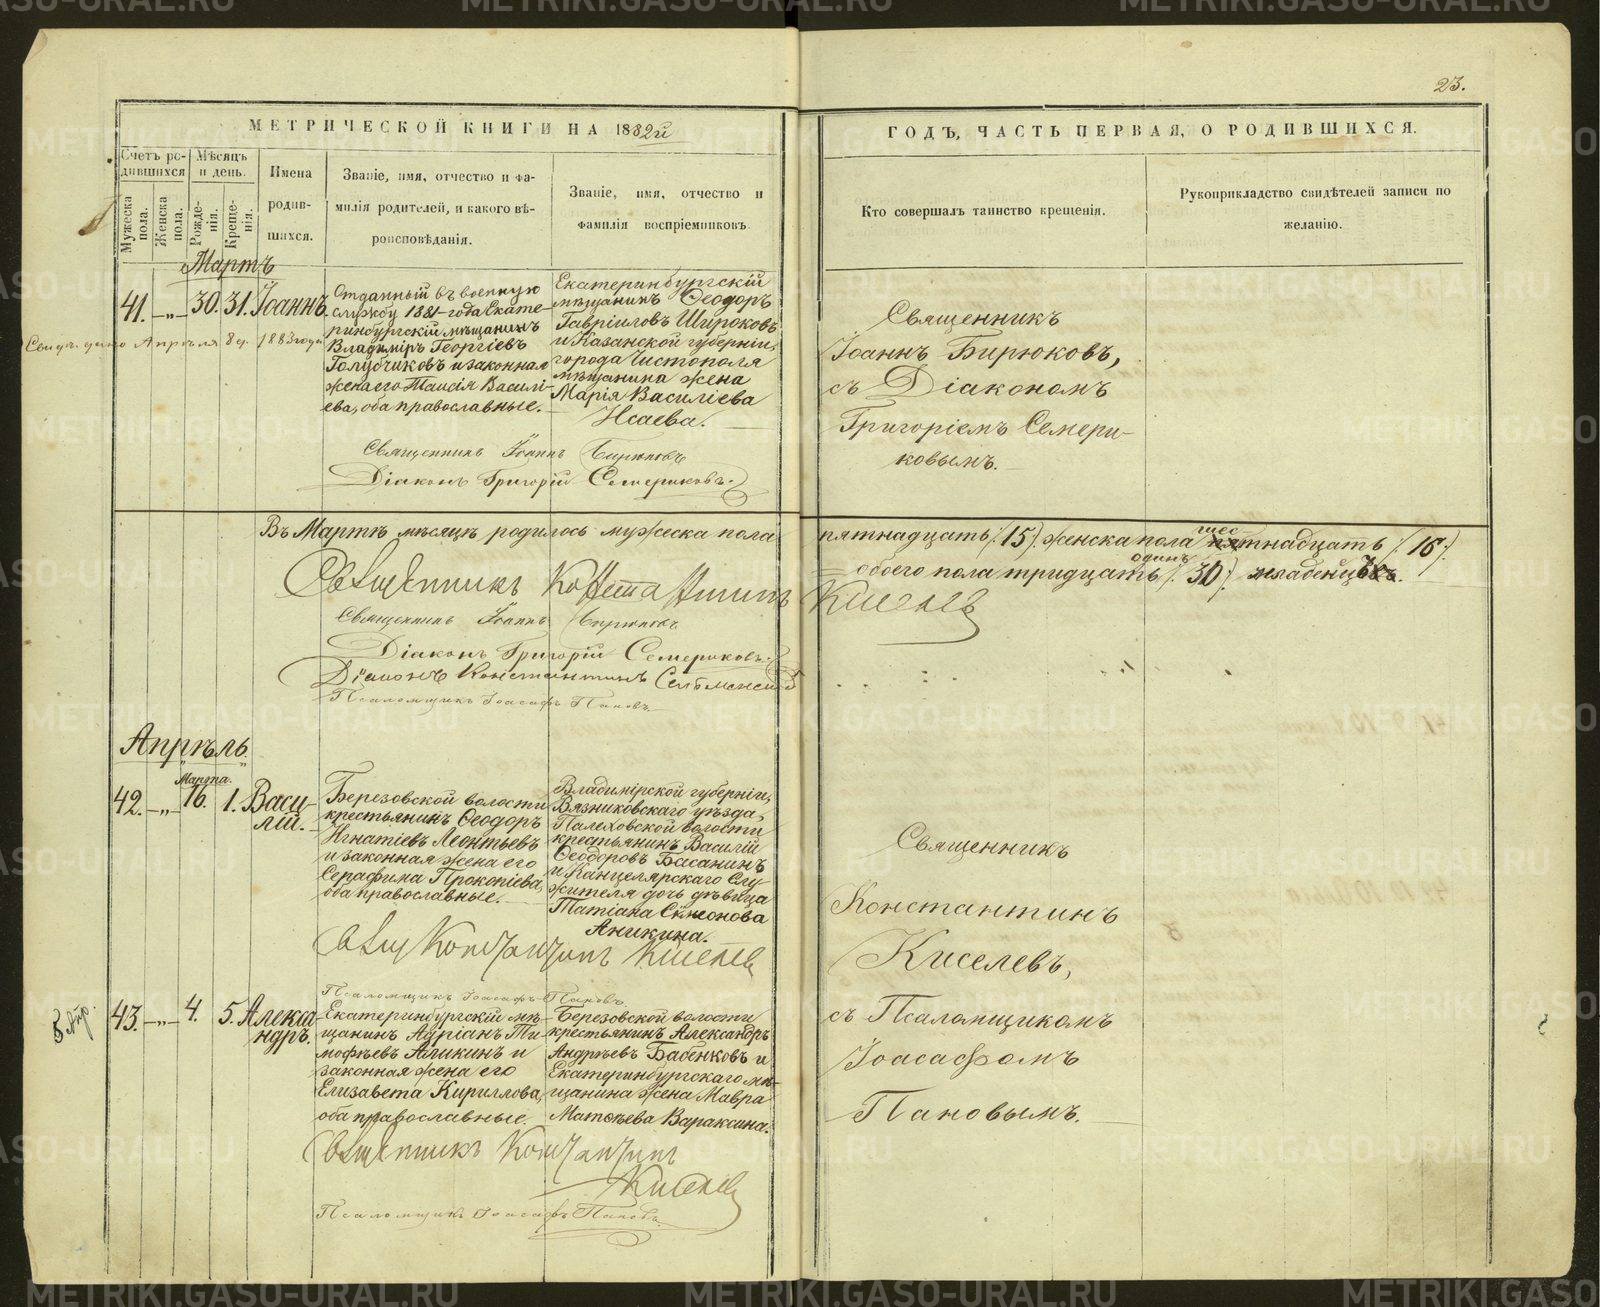 23.
МЕТРИЧЕСКОЙ КНИГИ НА 1882й
ГОДЪ, ЧАСТЬ ПЕРВАЯ, О РОДИВШИХСЯ.
Счетъ родившихся
Мужеска пола.
Женска пола.
Мѣсяцъ и день.
Рожденія.
Крещенія.
Имена
родив-
шихся.
Званіе, имя, отчество и фа-
милія родителей, и какого вѣ-
роисповѣданія.
Званіе, имя, отчество и
фамилія воспріемниковъ
Кто совершалъ таинство крещенія.
Рукоприкладство свидѣтелей записи по
желанію.
Мартъ
41. „ 30. 31. Іоаннъ.
Свид. дано Апрѣля 8 д. 1883 года
Отданный въ военную
службу 1881 года Екате-
ринбургскій мѣщанинъ
Владиміръ Георгіевъ
Голубчиковъ и законная
жена его Таисія Василі-
ева, оба православные.
Екатеринбургскій
мѣщанинъ Ѳеодоръ
Гавріиловъ Широковъ
и Казанской губерніи,
города Чистополя
мѣщанина жена
Марія Василіева
Исаева.
Священникъ
Іоаннъ Бирюковъ,
съ Діакономъ
Григоріемъ Семери-
ковымъ.
Священникъ Іоаннъ Бирюковъ
Діаконъ Григорій Семериковъ.
Въ Мартѣ мѣсяцѣ родилось мужеска пола
пятнадцать (15) женска пола шестнадцать (16)
обоего пола тридцать одинъ (31) младенецъ.
Священникъ Константинъ Киселевъ
Священникъ Іоаннъ Бирюковъ
Діаконъ Григорій Семериковъ.
Діаконъ Константинъ
Псаломщикъ Іоасафъ Пановъ.
Апрѣль.
Марта.
42. „ 16. 1. Васи-
лій.
Березовской волости
крестьянинъ Ѳеодоръ
Игнатіевъ Леонтьевъ
и законная жена его
Серафима Прокопіева,
оба православные.
Владимірской губерніи,
Вязниковскаго уѣзда,
Палеховской волости
крестьянинъ Василій
Ѳеодоровъ Басанинъ
и Канцелярскаго Слу-
жителя дочь дѣвица
Татіана Симеонова
Аникина.
Свящ Константинъ Киселевъ
Псаломщикъ Іоасафъ Пановъ.
Священникъ
Константинъ
Киселевъ,
съ Псаломщикомъ
Іоасафомъ
Пановымъ.
43. „ 4. 5. Алекса-
ндръ.
Екатеринбургскій мѣ-
щанинъ Адріанъ Ти-
мофѣевъ Аликинъ и
законная жена его
Елизавета Кириллова,
оба православные.
Березовской волости
крестьянинъ Александръ
Андреевъ Бабенковъ и
Екатеринбургскаго мѣ-
щанина жена Мавра
Матѳѣева Вараксина.
Священникъ Константинъ
Киселевъ
Псаломщикъ Іоасафъ Пановъ.
METRIKI.GASO-URAL.RU